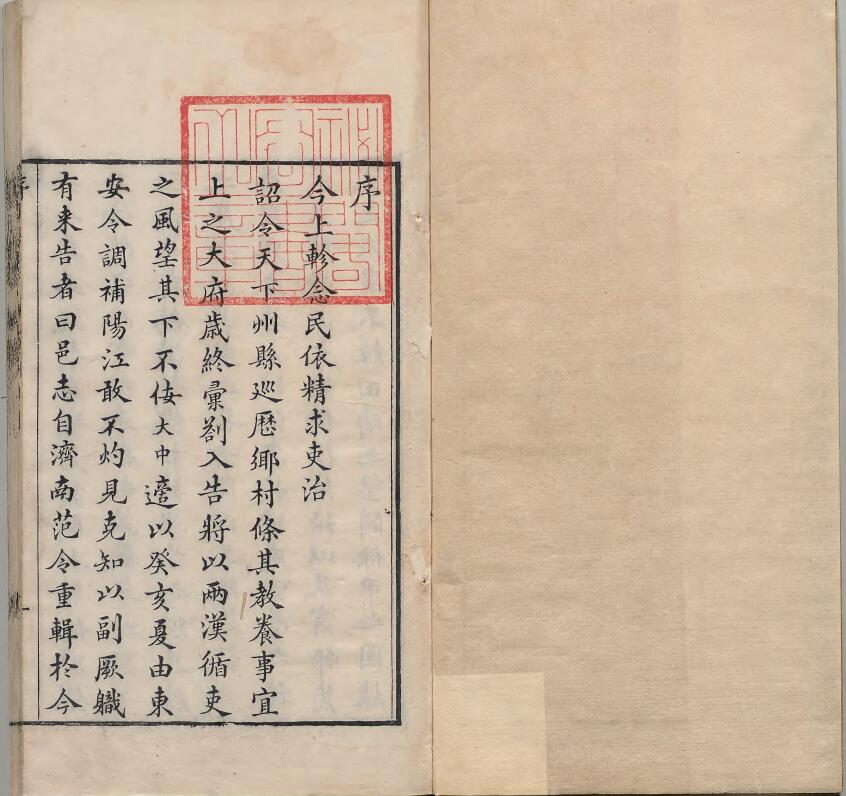 序
今上軫念民依精求吏治
詔令天下州縣巡歷鄉村條其教養事宜
上之大府歲終彙劄入告將以兩漢循吏
之風望其下不侫大中𨗿以癸亥夏由東
安令調補陽江敢不灼見克知以副厥職
有来告者曰邑志自濟南范令重輯於今
序
一